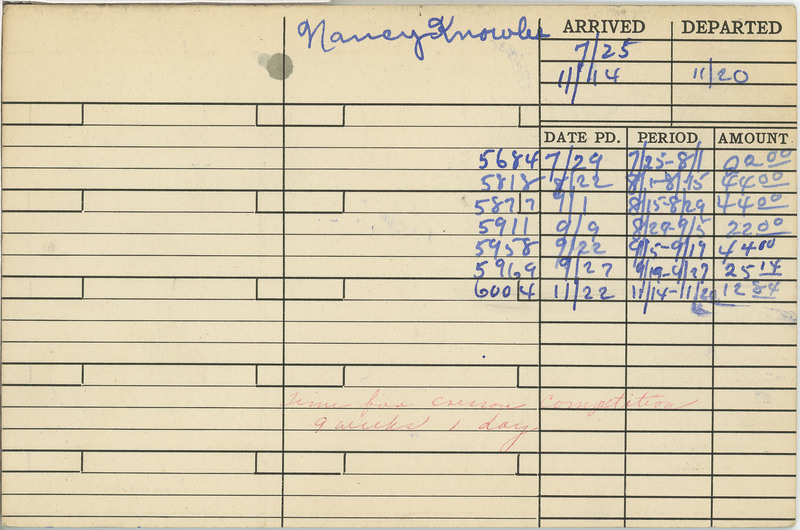 Nancy Knowles ARRIVED DEPARTED
7/25
11/14 11/20
DATE PD. PERIOD AMOUNT
5684 7/29 7/25-8/1 22 00
5818 8/22 8/1-8/15 44 00
5877 9/1 8/15-8/29 44 00
5911 9/9 8/29-9/5 22 00
5958 9/22 9/5-9/19 44 00
5969 9/27 9/19-9/27 25 14
6004 11/22 11/14-11/20 12 84
Time for cresson competition
9 weeks 1 day